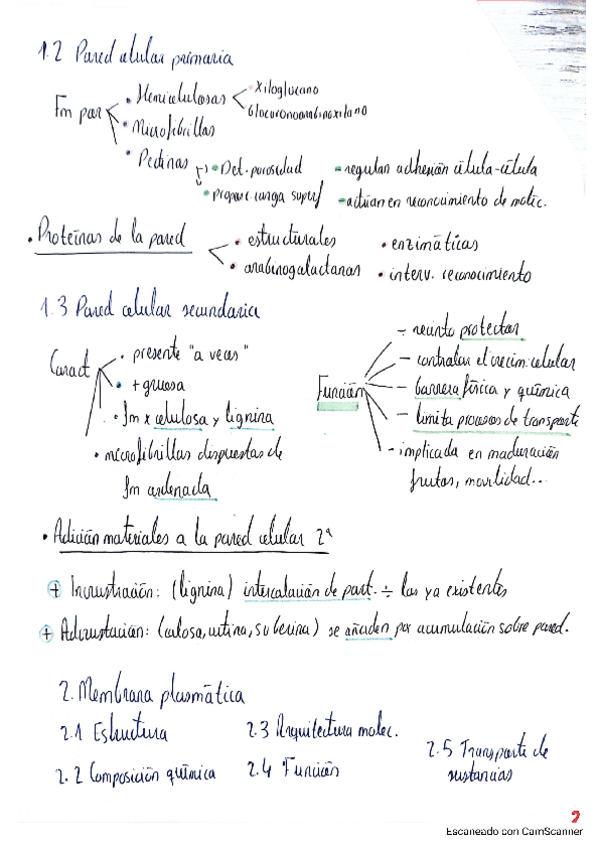 1.2 Pared celular primaria
Fm por
• Hemicelulosas
• Xiloglucano
Glucuronoarabinoxilano
• Microfibrillas
• Pectinas
• Det. porosidad
• proporc carga superf
- regulan adhesión célula-célula
- actúan en reconocimiento de molec.
• Proteínas de la pared
• estructurales
• arabinogalactanas
• enzimáticas
• interv. reconocimiento
1.3 Pared celular secundaria
Caract
• presente "a veces"
• + gruesa
• fm x celulosa y lignina
• microfibrillas dispuestas de
fm ordenada
Función
- recinto protector
- controlar el crecim. celular
- barrera física y química
- limita procesos de transporte
- implicada en maduración
frutas, movilidad...
• Adición materiales a la pared celular 2ª
+ Incrustación: (lignina) intercalación de part. ÷ las ya existentes
+ Adcrustación: (calosa, cutina, suberina) se añaden por acumulación sobre pared.
2. Membrana plasmática
2.1 Estructura
2.2 Composición química
2.3 Arquitectura molec.
2.4 Función
2.5 Transporte de
sustancias
2
Escaneado con CamScanner